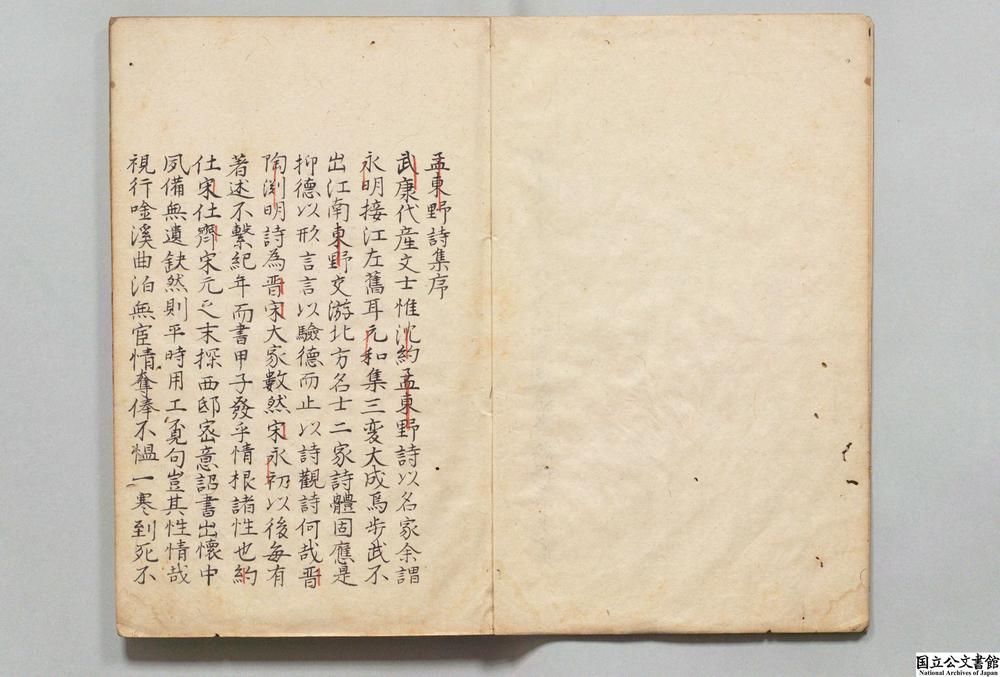 孟東野詩集序
武康代産文士惟沈約孟東野詩以名家余謂
永明接江左舊耳元和集三変大成焉步武不
出江南東野交游北方名士二家詩體固應是
抑德以形言言以驗德而止以詩觀詩何哉晋
陶渕明詩為晋宋大家數然宋永初以後每有
著述不繫紀年而書甲子發乎情根諸性也約
仕宋仕齊宋元之末探西邸密意詔書出懷中
夙備無遺缺然則平時用工覓句豈其性情哉
視行唫溪曲泊無宦情奪俸不慍一寒到死不
国立公文書館
National Archives of Japan